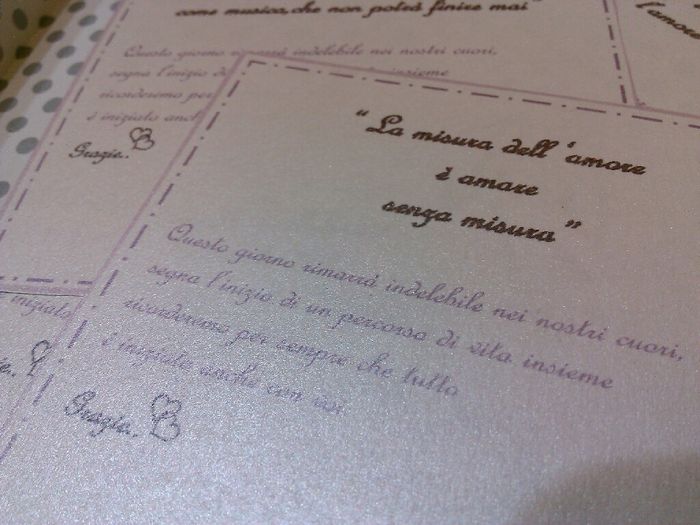 come musica, che non potrà finire mai"
l'amore
Questo giorno rimarrà indelebile nei nostri cuori,
segna l'inizio di insieme
ricorderemo per
è iniziato anch
Grazie..
"La misura dell'amore
è amare
senza misura"
Questo giorno rimarrà indelebile nei nostri cuori,
segna l'inizio di un percorso di vita insieme
ricorderemo per sempre che tutto
è iniziato anche con voi
Grazie..
iniziato